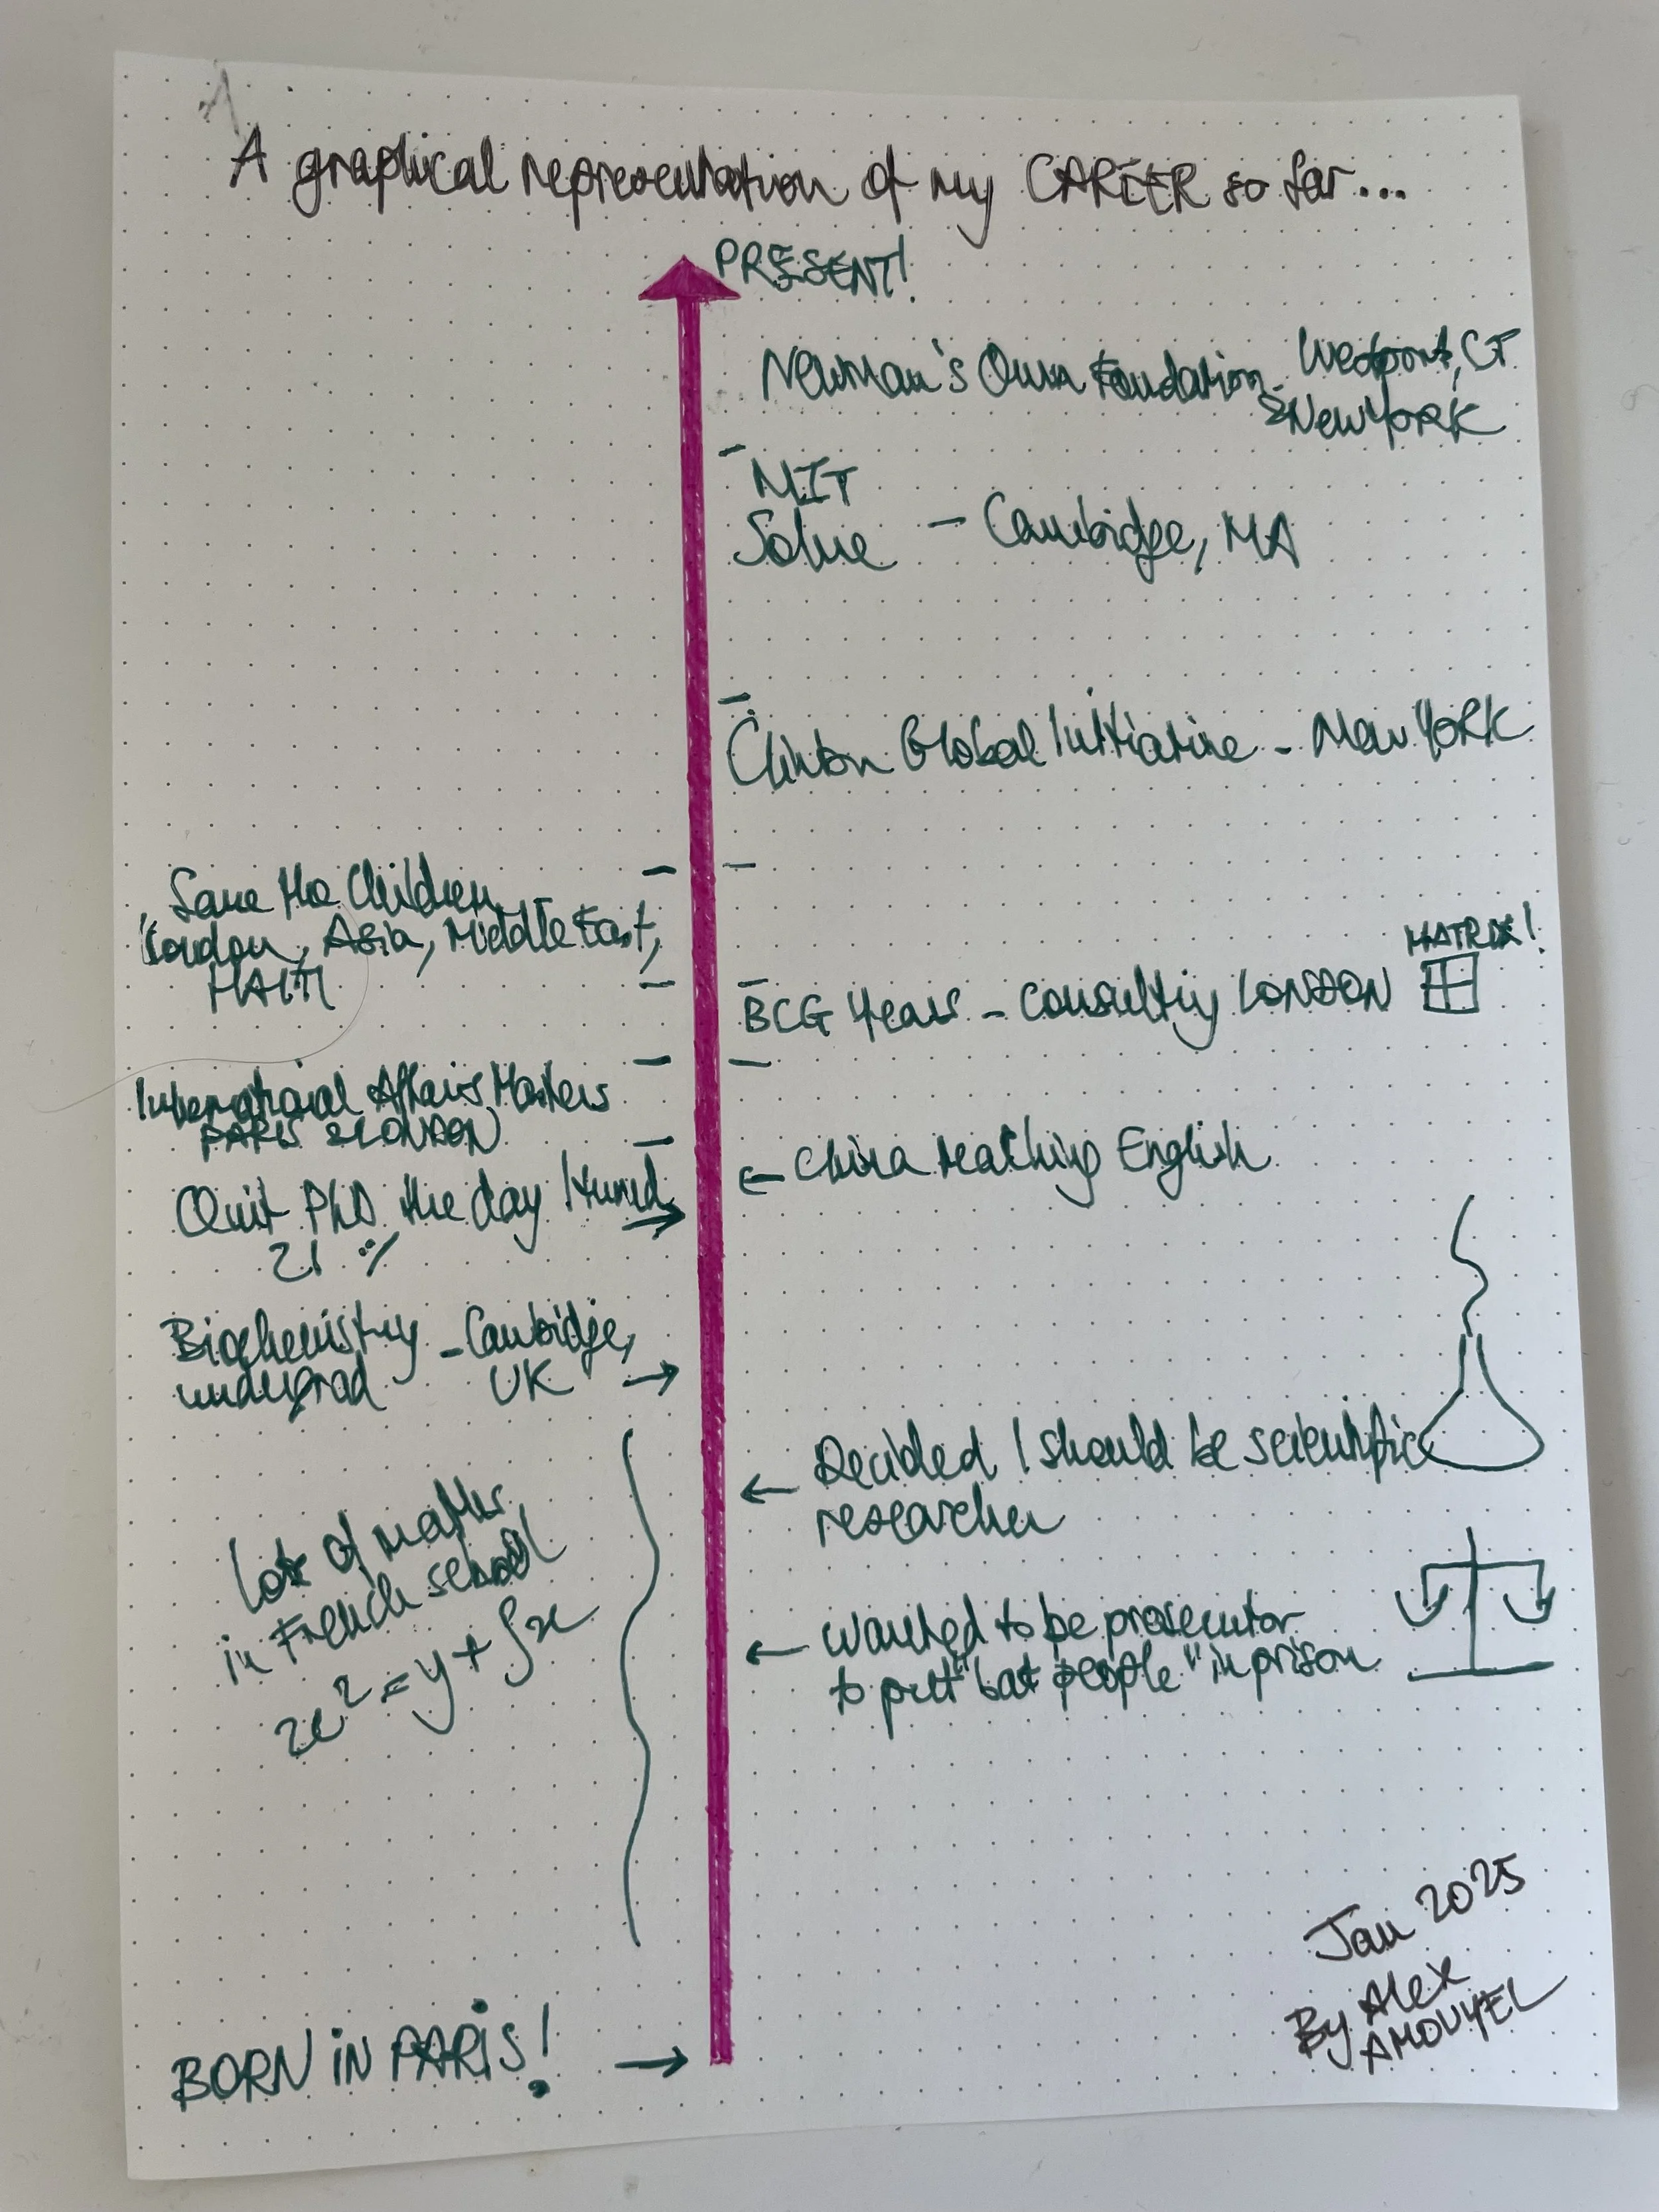 A graphical representation of my CAREER so far...
PRESENT!
Newman's Own Foundation - Westport, CT
& New YORK
MIT
Solve - Cambridge, MA
Clinton Global Initiative - New YORK
Save the Children
London, Asia, Middle East,
HAITI
MATRIX!
BCG Years - Consulting LONDON
International Affairs Masters
PARIS & LONDON
China teaching English
Quit PhD the day I turned
21 :/
Biochemistry - Cambridge,
undergrad UK
Decided I should be scientific
researcher
Lots of maths
in French school
x² = y + ∫x
Wanted to be prosecutor
to put "bad people" in prison
Jan 2025
By Alex
AMOUYEL
BORN IN PARIS!